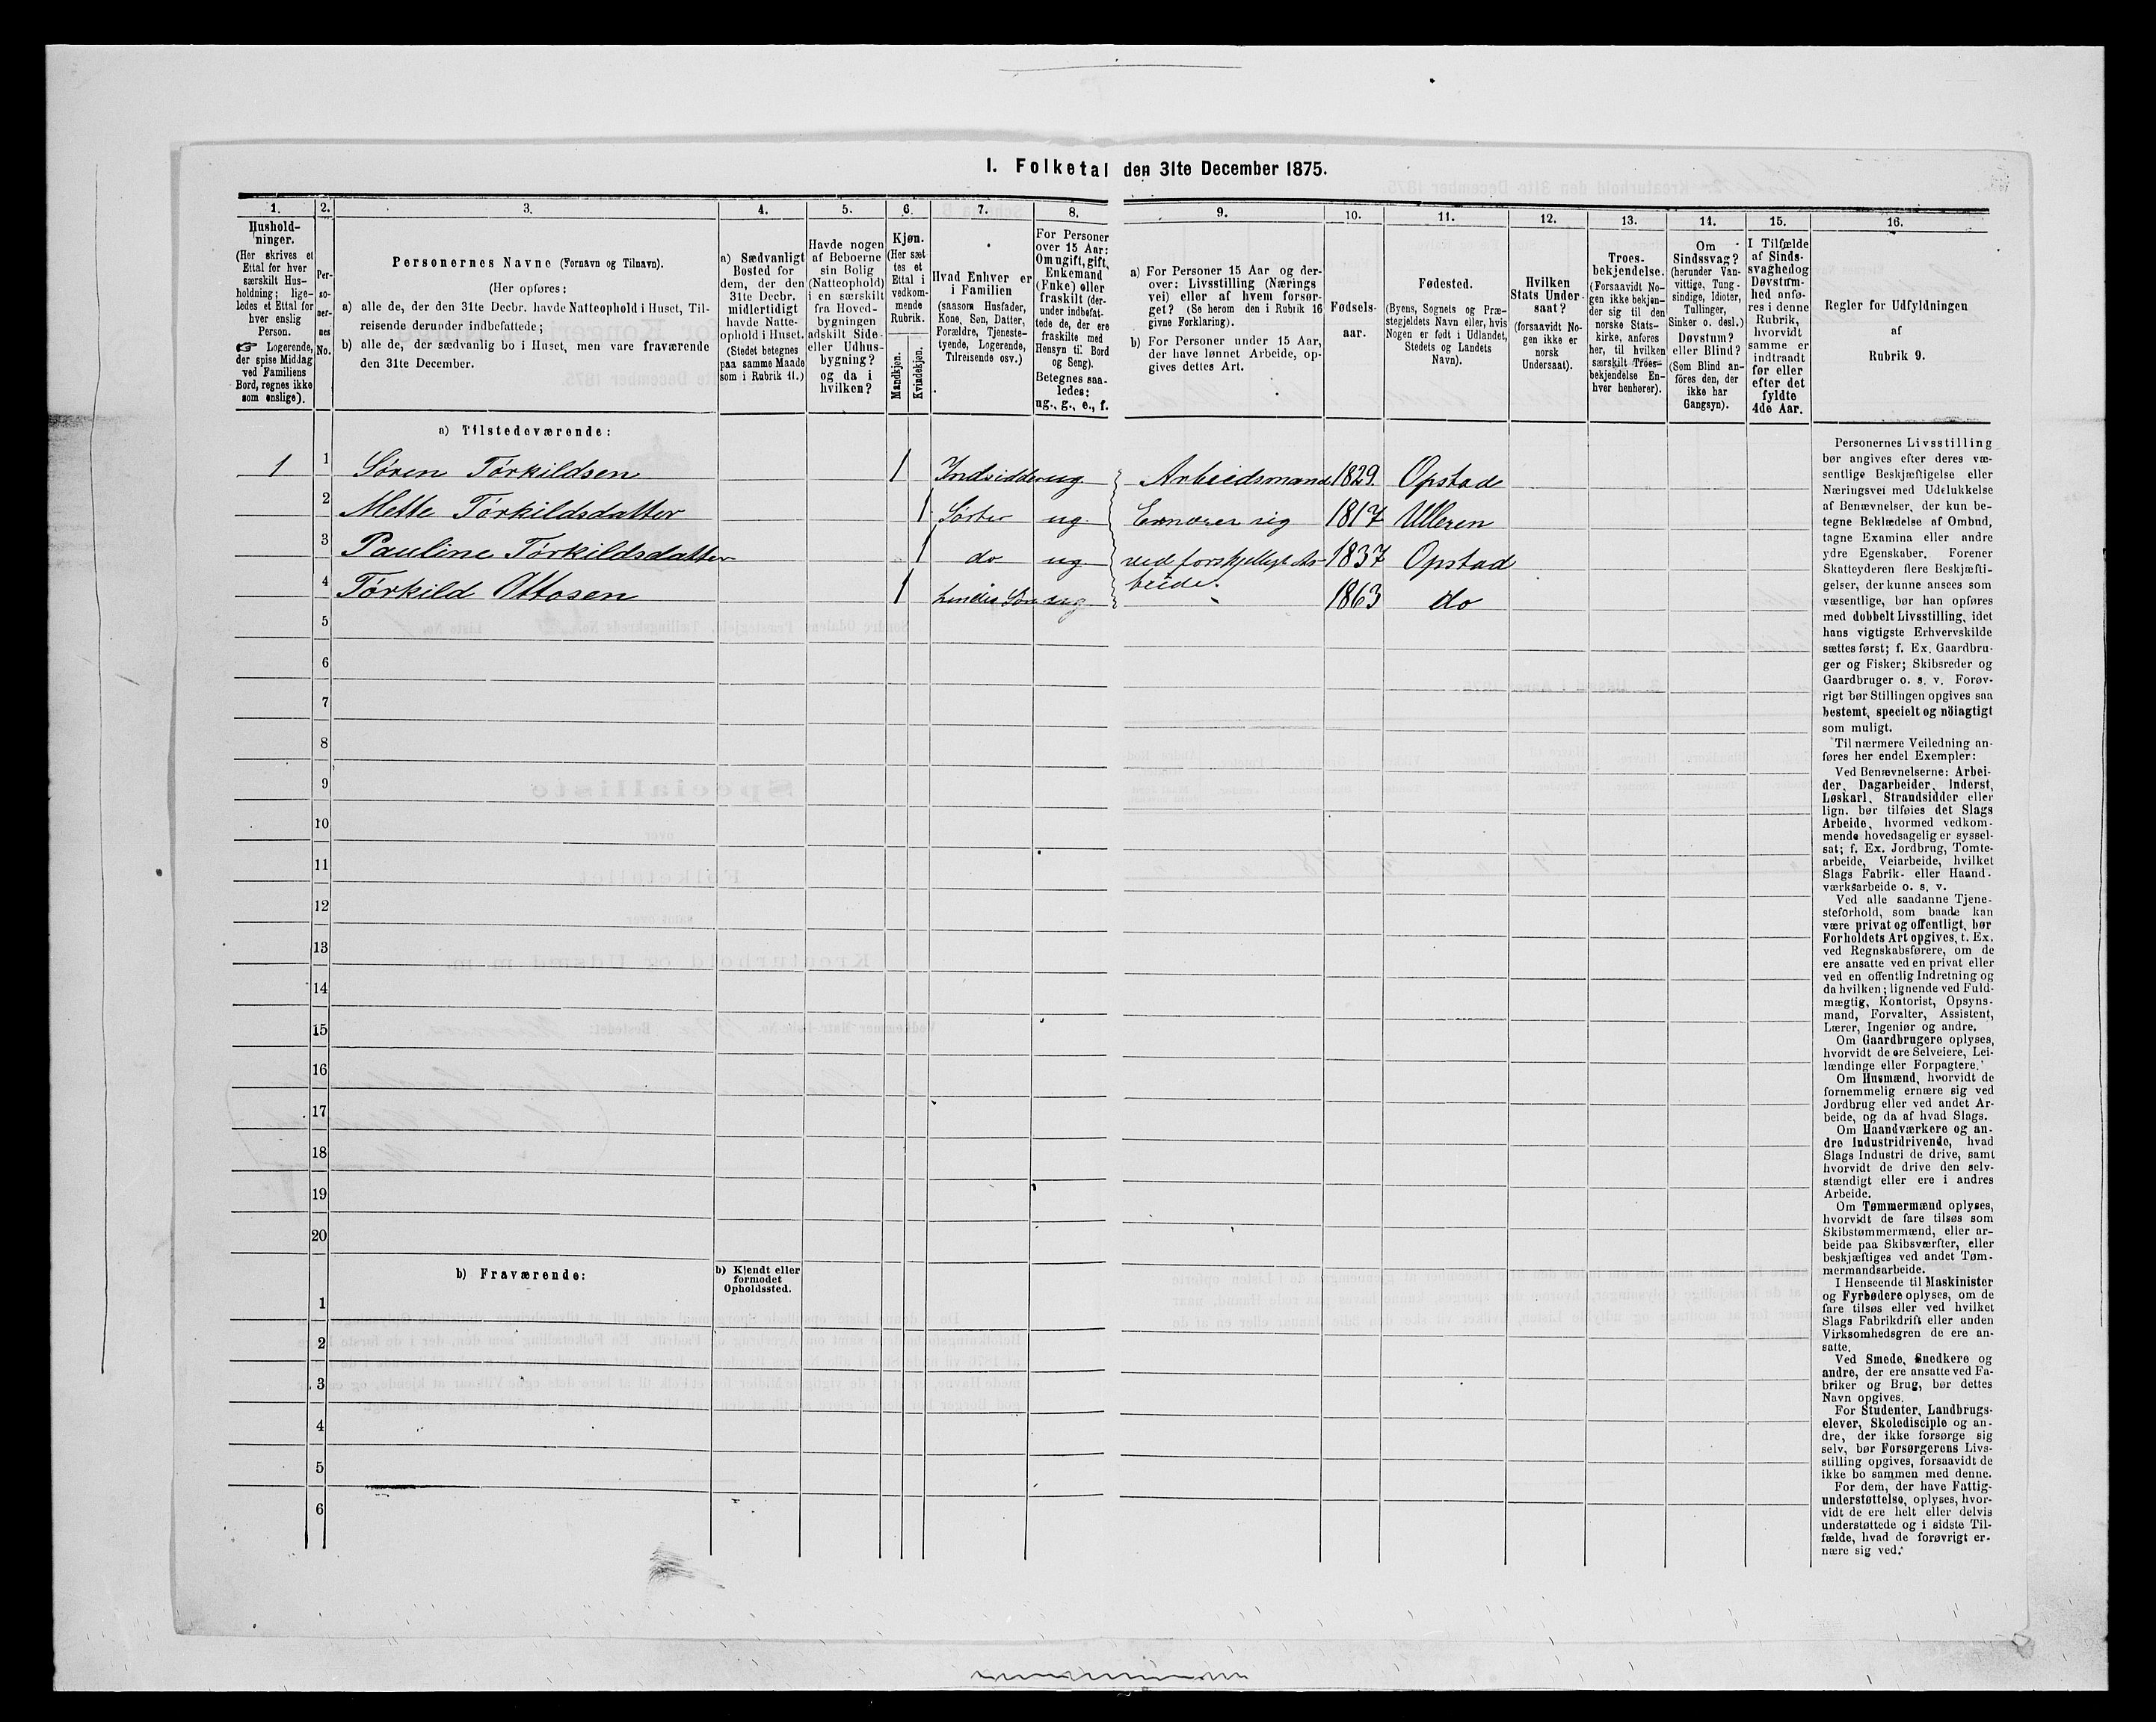 I. Folketal den 31te December 1875.
1. 2. 3. 4. 5. 6. 7. 8. 9. 10. 11. 12. 13. 14. 15. 16.
Hushold-
ninger.
(Her skrives et
Ettal for hver
særskilt Hus-
holdning; lige-
ledes et Ettal for
hver enslig
Person.
☞ Logerende,
der spise Middag
ved Familiens
Bord, regnes ikke
som enslige).
Per-
so-
ner-
nes
No.
Personernes Navne (Fornavn og Tilnavn).
(Her opføres:
a) alle de, der den 31te Decbr. havde Natteophold i Huset, Til-
reisende derunder indbefattede;
b) alle de, der sædvanlig bo i Huset, men vare fraværende
den 31te December.
a) Sædvanligt
Bosted for
dem, der den
31te Decbr.
midlertidigt
havde Natte-
ophold i Huset.
(Stedet betegnes
paa samme Maade
som i Rubrik 11.)
Havde nogen
af Beboerne
sin Bolig
(Natteophold)
i en særskilt
fra Hoved-
bygningen
adskilt Side-
eller Udhus-
bygning?
og da i
hvilken?
Kjøn.
(Her sæt
tes et
Ettal i
vedkom-
mende
Rubrik.
Mandkjøn.
Kvindekjøn.
Hvad Enhver er
i Familien
(saasom Husfader,
Kone, Søn, Datter,
Forældre, Tjeneste-
tyende, Logerende,
Tilreisende osv.)
For Personer
over 15 Aar:
Om ugift, gift,
Enkemand
(Enke) eller
fraskilt (der-
under indbefat-
tede de, der ere
fraskilte med
Hensyn til Bord
og Seng).
Betegnes saa-
ledes:
ug., g., e., f.
a) For Personer 15 Aar og der-
over: Livsstilling (Nærings
vei) eller af hvem forsør-
get? (Se herom den i Rubrik 16
givne Forklaring).
b) For Personer under 15 Aar,
der have lønnet Arbeide, op-
gives dettes Art.
Fødsels-
aar.
Fødested.
(Byens, Sognets og Præ-
stegjeldets Navn eller, hvis
Nogen er født i Udlandet,
Stedets og Landets
Navn).
Hvilken
Stats Under-
saat?
(forsaavidt No-
gen ikke er
norsk
Undersaat).
Troes-
bekjendelse.
(Forsaavidt No-
gen ikke bekjen-
der sig til den
norske Stats-
kirke, anføres
her, til hvilken
særskilt Troes-
bekjendelse En-
hver henhører).
Om
Sindssvag?
(herunder Van-
vittige, Tung-
sindige, Idioter,
Tullinger,
Sinker o. desl.)
Døvstum?
eller Blind?
(Som Blind an-
føres den, der
ikke har
Gangsyn).
I Tilfælde
af Sinds-
svaghedog
Døvstum-
hed anfø-
res i denne
Rubrik,
hvorvidt
samme er
indtraadt
før eller
efter det
fyldte
4de Aar.
Regler for Udfyldningen
af
Rubrik 9.
a) Tilstedeværende:
1 1 Søren Tørkildsen 1 Indsidder ug Arbeidsmand 1829. Opstad
2 Mette Tørkildsdatter 1 Søster ug. Ernærer sig 1817 Ulleren
3 Pauline Tørkildsdatter 1 do ug ved forskjelligt Ar- 1837 Opstad
beide.
4 Tørkild Ottosen 1 hendes Søn ug 1863 do
5
6
7
8
9
10
11
12
13
14
15
16
17
18
19
20
b) Fraværende:
b) Kjendt eller
formodet
Opholdssted.
1
2
3
4
5
6
Personernes Livsstilling
bør angives efter deres væ-
sentlige Beskjæftigelse eller
Næringsvei med Udelukkelse
af Benævnelser, der kun be-
tegne Beklædelse af Ombud,
tagne Examina eller andre
ydre Egenskaber. Forener
Skatteyderen flere Beskjæfti-
gelser, der kunne ansees som
væsentlige, bør han opføres
med dobbelt Livsstilling, idet
hans vigtigste Erhvervskilde
sættes først; f. Ex. Gaardbru-
ger og Fisker; Skibsreder og
Gaardbruger o. s. v. Forøv-
rigt bør Stillingen opgives saa
bestemt, specielt og nöiagtigt
som muligt.
Til nærmere Veiledning an-
føres her endel Exempler:
Ved Benævnelserne: Arbei-
der, Dagarbeider, Inderst,
Løskarl, Strandsidder eller
lign. bør tilføies det Slags
Arbeide, hvormed vedkom-
mende hovedsagelig er syssel-
sat; f. Ex. Jordbrug, Tomte-
arbeide, Veiarbeide, hvilket
Slags Fabrik- eller Haand-
værksarbeide o. s. v.
Ved alle saadanne Tjene-
steforhold, som baade kan
være privat og offentligt, bør
Forholdets Art opgives, t. Ex.
ved Regnskabsførere, om de
ere ansatte ved en privat eller
ved en offentlig Indretning og
da hvilken; lignende ved Fuld-
mægtig, Kontorist, Opsyns-
mand, Forvalter, Assistent,
Lærer, Ingeniør og andre.
Om Gaardbrugere oplyses,
hvorvidt de ere Selveiere, Lei-
lændinge eller Forpagtere.
Om Husmænd, hvorvidt de
fornemmelig ernære sig ved
Jordbrug eller ved andet Ar-
beide, og da af hvad Slags.
Om Haandværkere og an-
dre Industridrivende, hvad
Slags Industri de drive, samt
hvorvidt de drive den selv-
stændigt eller ere i andres
Arbeide.
Om Tømmermænd oplyses,
hvorvidt de fare tilsøs som
Skibstømmermænd, eller ar-
beide paa Skibsværfter, eller
beskjæftiges ved andet Tøm-
mermandsarbeide.
I Henseende til Maskinister
og Fyrbødere oplyses, om de
fare tilsøs eller ved hvilket
Slags Fabrikdrift eller anden
Virksomhedsgren de ere an-
satte.
Ved Smede, Snedkere og
andre, der ere ansatte ved Fa-
briker og Brug, bør dettes
Navn opgives.
For Studenter, Landbrugs-
elever, Skoledisciple og an-
dre, der ikke forsørge sig
selv, bør Forsørgerens Livs-
stilling opgives, forsaavidt de
ikke bo sammen med denne.
For dem, der have Fattig-
understøttelse, oplyses, hvor-
vidt de ere helt eller delvis
understøttede og i sidste Til-
fælde, hvad de forøvrigt er-
nære sig ved.